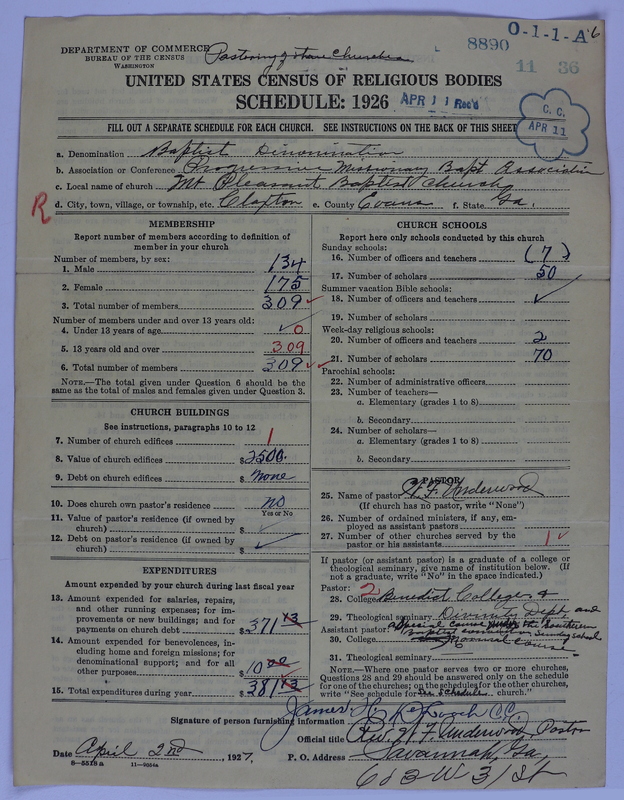 0-1-1-A
8890
11 36
DEPARTMENT OF COMMERCE
BUREAU OF THE CENSUS
WASHINGTON
Pastoring other Churches
UNITED STATES CENSUS OF RELIGIOUS BODIES
SCHEDULE: 1926
APR 11 Rec'd
C. C.
APR 11
FILL OUT A SEPARATE SCHEDULE FOR EACH CHURCH. SEE INSTRUCTIONS ON THE BACK OF THIS SHEET
a. Denomination Baptist Dinomination
b. Association or Conference Progressive Missionary Bapt Association
c. Local name of church Mt Pleasant Baptist Church
R
d. City, town, village, or township, etc. Claxton e. County Evans f. State Ga.
MEMBERSHIP
Report number of members according to definition of
member in your church
Number of members, by sex:
1. Male 134
2. Female 175
3. Total number of members 309
Number of members under and over 13 years old:
4. Under 13 years of age 0
5. 13 years old and over 309
6. Total number of members 309
NOTE.—The total given under Question 6 should be
same as the total of males and females given under Question 3.
CHURCH BUILDINGS
See instructions, paragraphs 10 to 12
7. Number of church edifices 1
8. Value of church edifices $ 2500.
9. Debt on church edifices $ None
10. Does church own pastor's residence no
Yes or No
11. Value of pastor's residence (if owned by
church) $
12. Debt on pastor's residence (if owned by
church) $
EXPENDITURES
Amount expended by your church during last fiscal year
13. Amount expended for salaries, repairs,
and other running expenses; for im-
provements or new buildings; and for
payments on church debt $ 371 13
14. Amount expended for benevolences, in-
cluding home and foreign missions; for
denominational support; and for all
other purposes $ 10 00
15. Total expenditures during year $ 381 13
CHURCH SCHOOLS
Report here only schools conducted by this church
Sunday schools:
16. Number of officers and teachers (7)
17. Number of scholars 50
Summer vacation Bible schools:
18. Number of officers and teachers
19. Number of scholars
Week-day religious schools:
20. Number of officers and teachers 2
21. Number of scholars 70
Parochial schools:
22. Number of administrative officers
23. Number of teachers—
a. Elementary (grades 1 to 8)
b. Secondary
24. Number of scholars—
a. Elementary (grades 1 to 8)
b. Secondary
PASTOR
25. Name of pastor N. F. Underwood
(If church has no pastor, write "None")
26. Number of ordained ministers, if any, em-
ployed as assistant pastors
27. Number of other churches served by the
pastor or his assistants 1
If pastor (or assistant pastor) is a graduate of a college or
theological seminary, give name of institution below. (If
not a graduate, write "No" in the space indicated.)
Pastor: 2
28. College Benedict College &
29. Theological seminary Divinity Dept and
Assistant pastor: Special Course the Southern
Baptist Sunday school
30. College Normal Course
31. Theological seminary
NOTE.—Where one pastor serves two or more churches,
Questions 28 and 29 should be answered only on the schedule
for one of the churches; on the schedules for the other churches,
write "See schedule for church."
Signature of person furnishing information James H. C.C.
Official title Rev. N. F. Underwood, Pastor
Date April 2nd, 1927. P. O. Address Savannah, Ga,
8—5518a 11—9054a
613 W 31 St